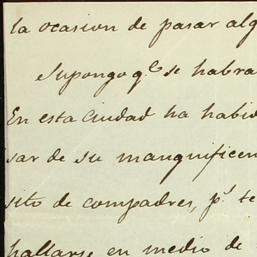 la ocasion de pasar alg
Supongo q.e se habra
En esta Ciudad ha habid
sar de su manquificen
sito de compadres, p.r te
hallarse en medio de